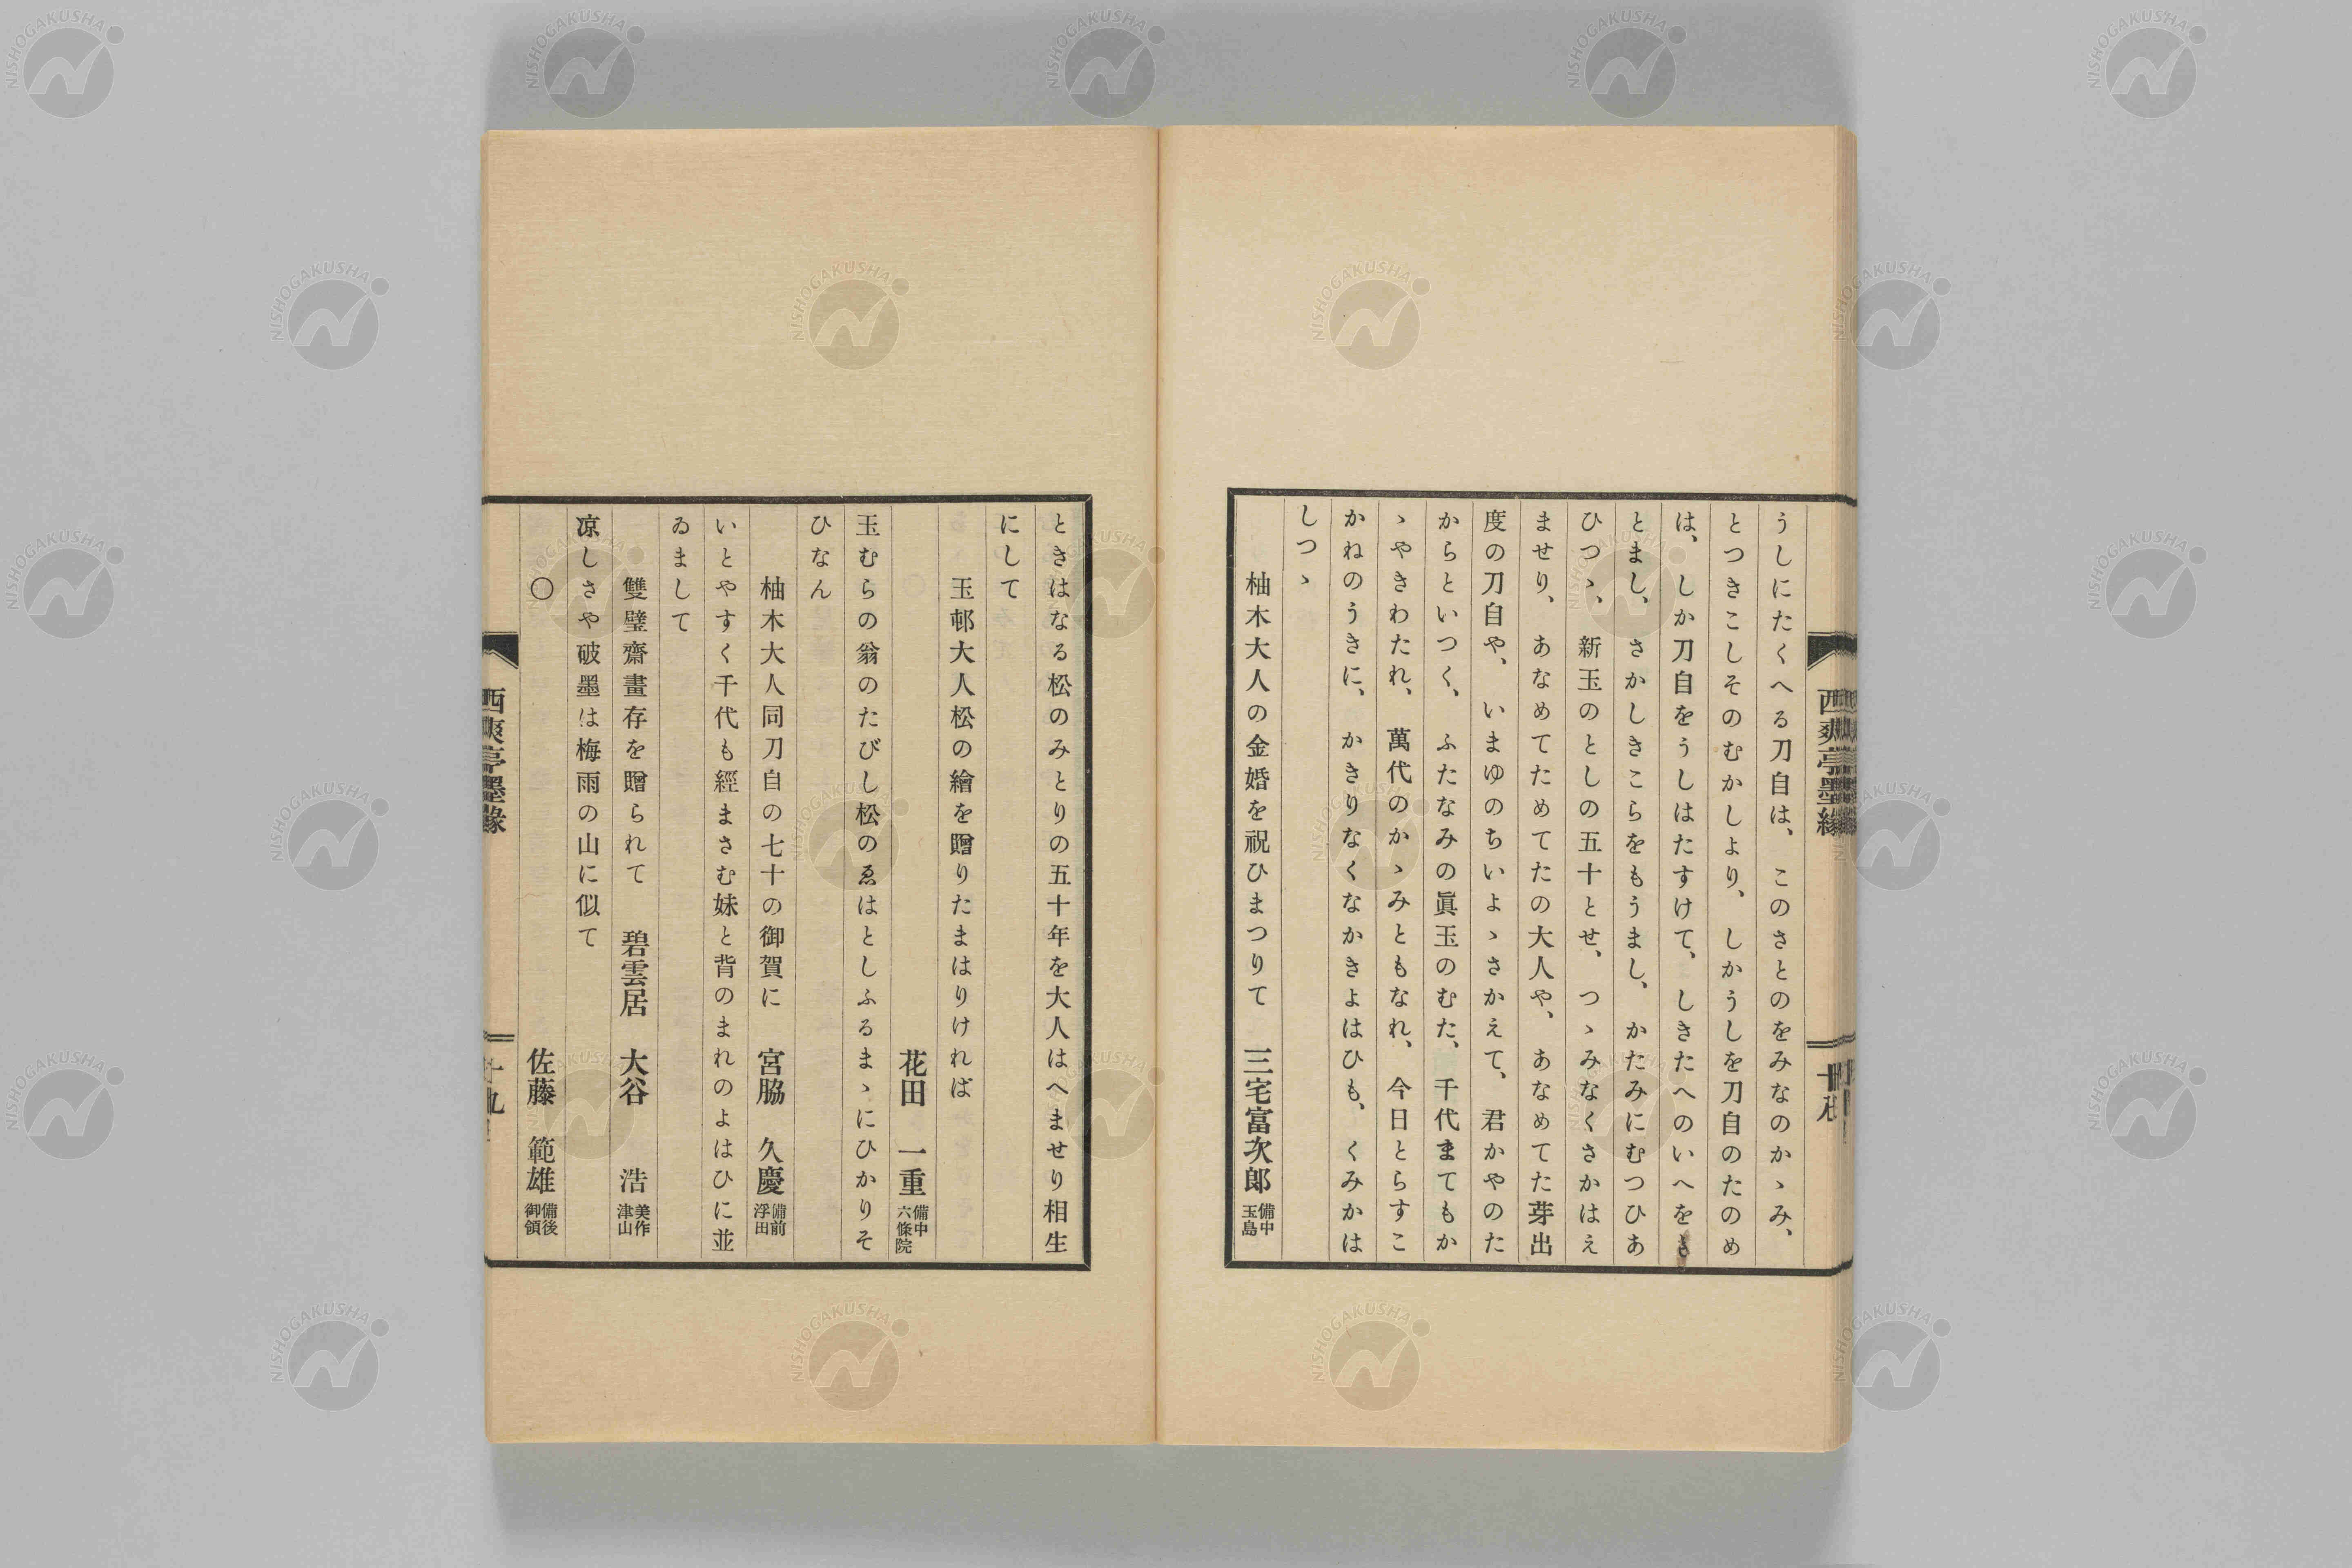 うしにたくへる刀自は、このさとのをみなのかゝみ、
とつきこしそのむかしより、しかうしを刀自のたのめ
は、しか刀自をうしはたすけて、しきたへのいへをさ
とまし、さかしきこらをもうまし、かたみにむつひあ
ひつゝ、新玉のとしの五十とせ、つゝみなくさかはえ
ませり、あなめてためてたの大人や、あなめてた芽出
度の刀自や、いまゆのちいよゝさかえて、君かやのた
からといつく、ふたなみの眞玉のむた、千代まてもか
ゝやきわたれ、萬代のかゝみともなれ、今日とらすこ
かねのうきに、かきりなくなかきよはひも、くみかは
しつゝ
柚木大人の金婚を祝ひまつりて 三宅富次郎 備中玉島
西爽亭墨緣
ときはなる松のみとりの五十年を大人はへませり相生
にして
玉邨大人松の繪を贈りたまはりければ
花田 一重 備中六條院
玉むらの翁のたびし松のゑはとしふるまゝにひかりそ
ひなん
柚木大人同刀自の七十の御賀に 宮脇 久慶 備前浮田
いとやすく千代も經まさむ妹と背のまれのよはひに並
ゐまして
雙璧齋畫存を贈られて 碧雲居 大谷 浩 美作津山
凉しさや破墨は梅雨の山に似て
〇 佐藤 範雄 備後御領
西爽亭墨緣
十九
NISHOGAKUSHA